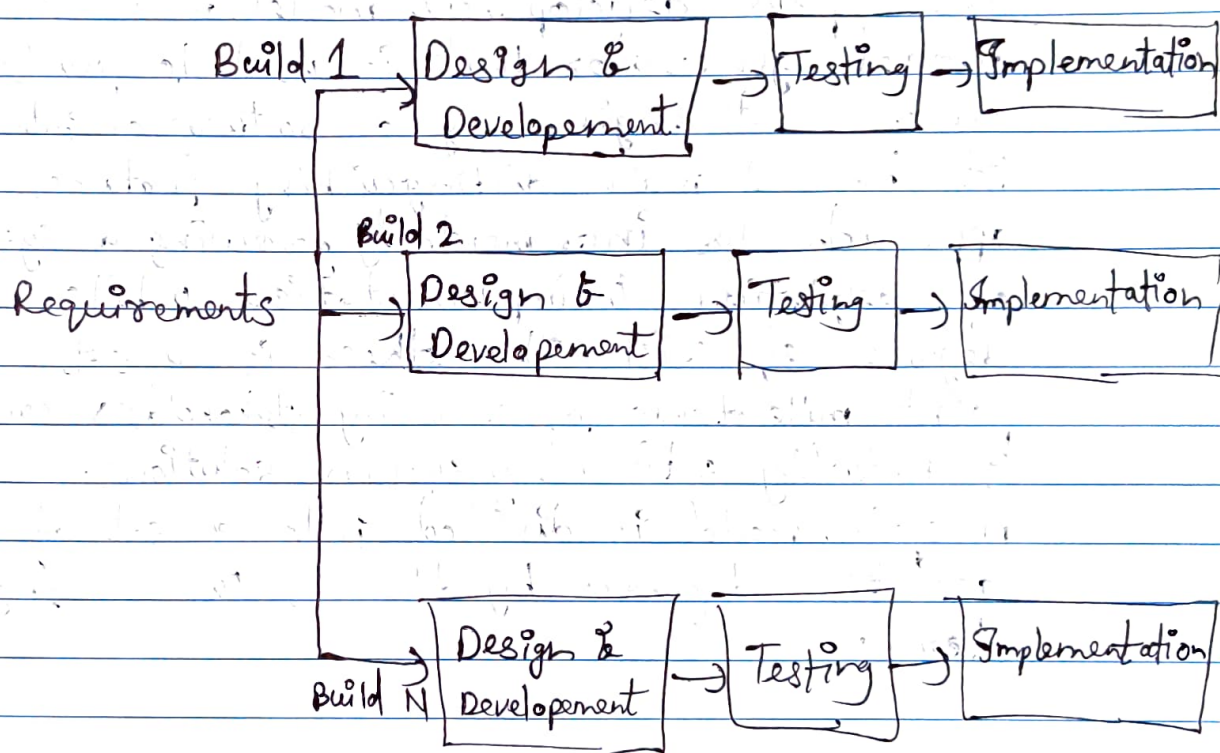 Build 1
Design &
Developement
Testing
Implementation
Build 2
Requirements
Design &
Developement
Testing
Implementation
Build N
Design &
Developement
Testing
Implementation